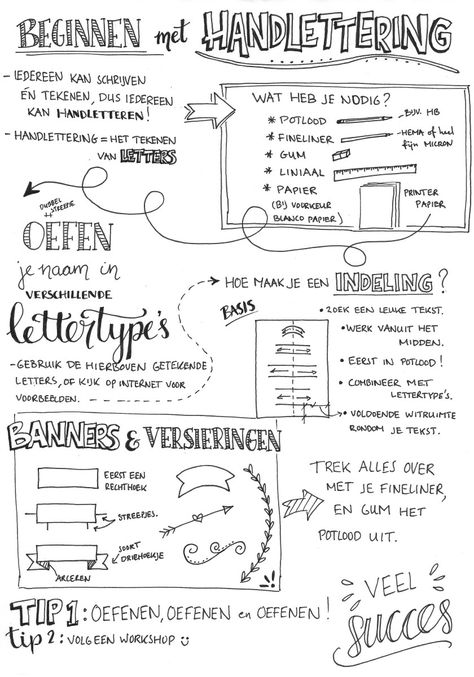 BEGINNEN met HANDLETTERING
- IEDEREEN KAN SCHRIJVEN
ÉN TEKENEN, DUS IEDEREEN
KAN HANDLETTEREN!
- HANDLETTERING = HET TEKENEN
VAN LETTERS
WAT HEB JE NODIG?
* POTLOOD
BIJV. HB
* FINELINER
HEMA of heel
fijn MICRON
* GUM
* LINIAAL
* PAPIER
(BIJ VOORKEUR
BLANCO PAPIER)
PRINTER
PAPIER
DUBBEL
STREEPJE
OEFEN
je naam in
VERSCHILLENDE
lettertype's
- GEBRUIK DE HIERBOVEN GETEKENDE
LETTERS, OF KIJK OP INTERNET VOOR
VOORBEELDEN.
HOE MAAK JE EEN INDELING?
BASIS
• ZOEK EEN LEUKE TEKST.
• WERK VANUIT HET
MIDDEN.
• EERST IN POTLOOD!
• COMBINEER MET
LETTERTYPE'S.
• VOLDOENDE WITRUIMTE
RONDOM JE TEKST.
BANNERS & VERSIERINGEN
EERST EEN
RECHTHOEK
STREEPJES.
SOORT
DRIEHOEKJE
ARCEREN
!!
TREK ALLES OVER
MET JE FINELINER,
EN GUM HET
POTLOOD UIT.
TIP 1: OEFENEN, OEFENEN en OEFENEN!
tip 2: VOLG EEN WORKSHOP
VEEL
SUCCES